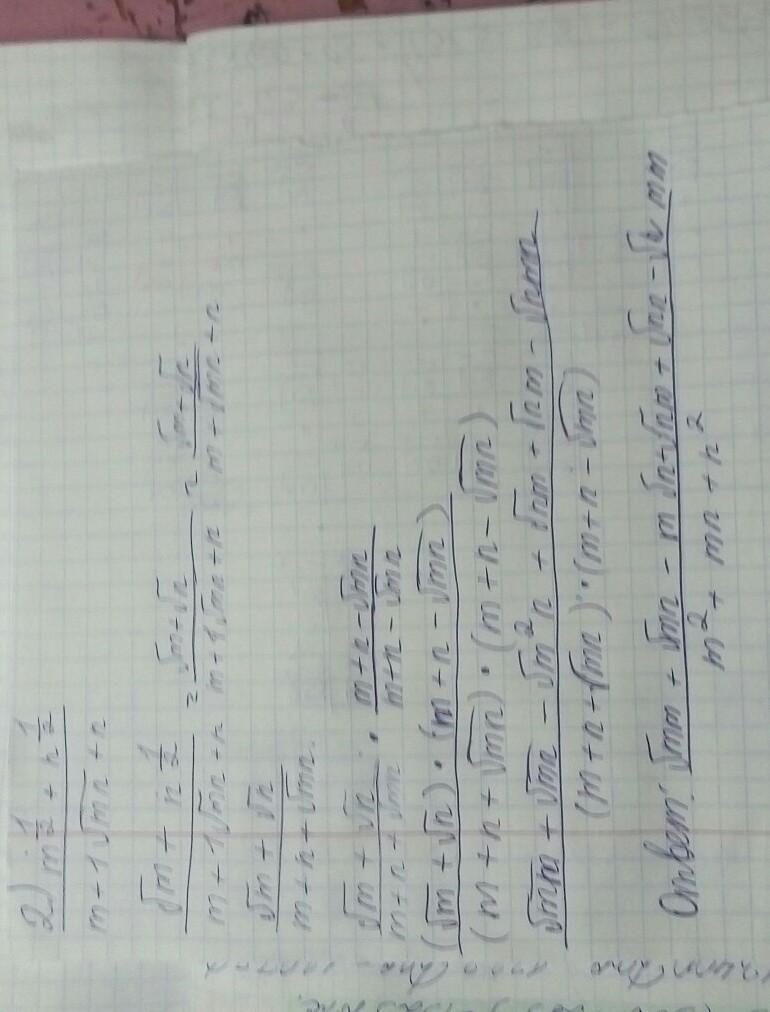 2) (m^(1/2) + n^(1/2)) / (m + 1√mn + n)
(√m + n^(1/2)) / (m + 1√mn + n) = (√m + √n) / (m + 1√mn + n) = (√m + √n) / (m + √mn + n)
(√m + √n) / (m + n + √mn)
(√m + √n) / (m + n + √mn) · (m + n - √mn) / (m + n - √mn)
((√m + √n) · (m + n - √mn)) / ((m + n + √mn) · (m + n - √mn))
(√mm + √mn - √m²n + √nm + √nm - √nmn) / ((m + n + √mn) · (m + n - √mn))
Ответ: (√mm + √mn - m√n + √nm + √nn - √n mm) / (m² + mn + n²)